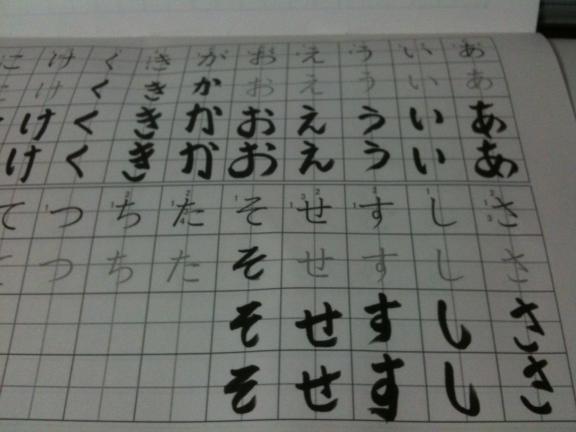 ああああ
いいいい
うううう
ええええ
おおおお
かかかか
きききき
くくくく
けけけけ
ささささ
しししし
すすすす
せせせせ
そそそそ
たた
ちち
つつ
て